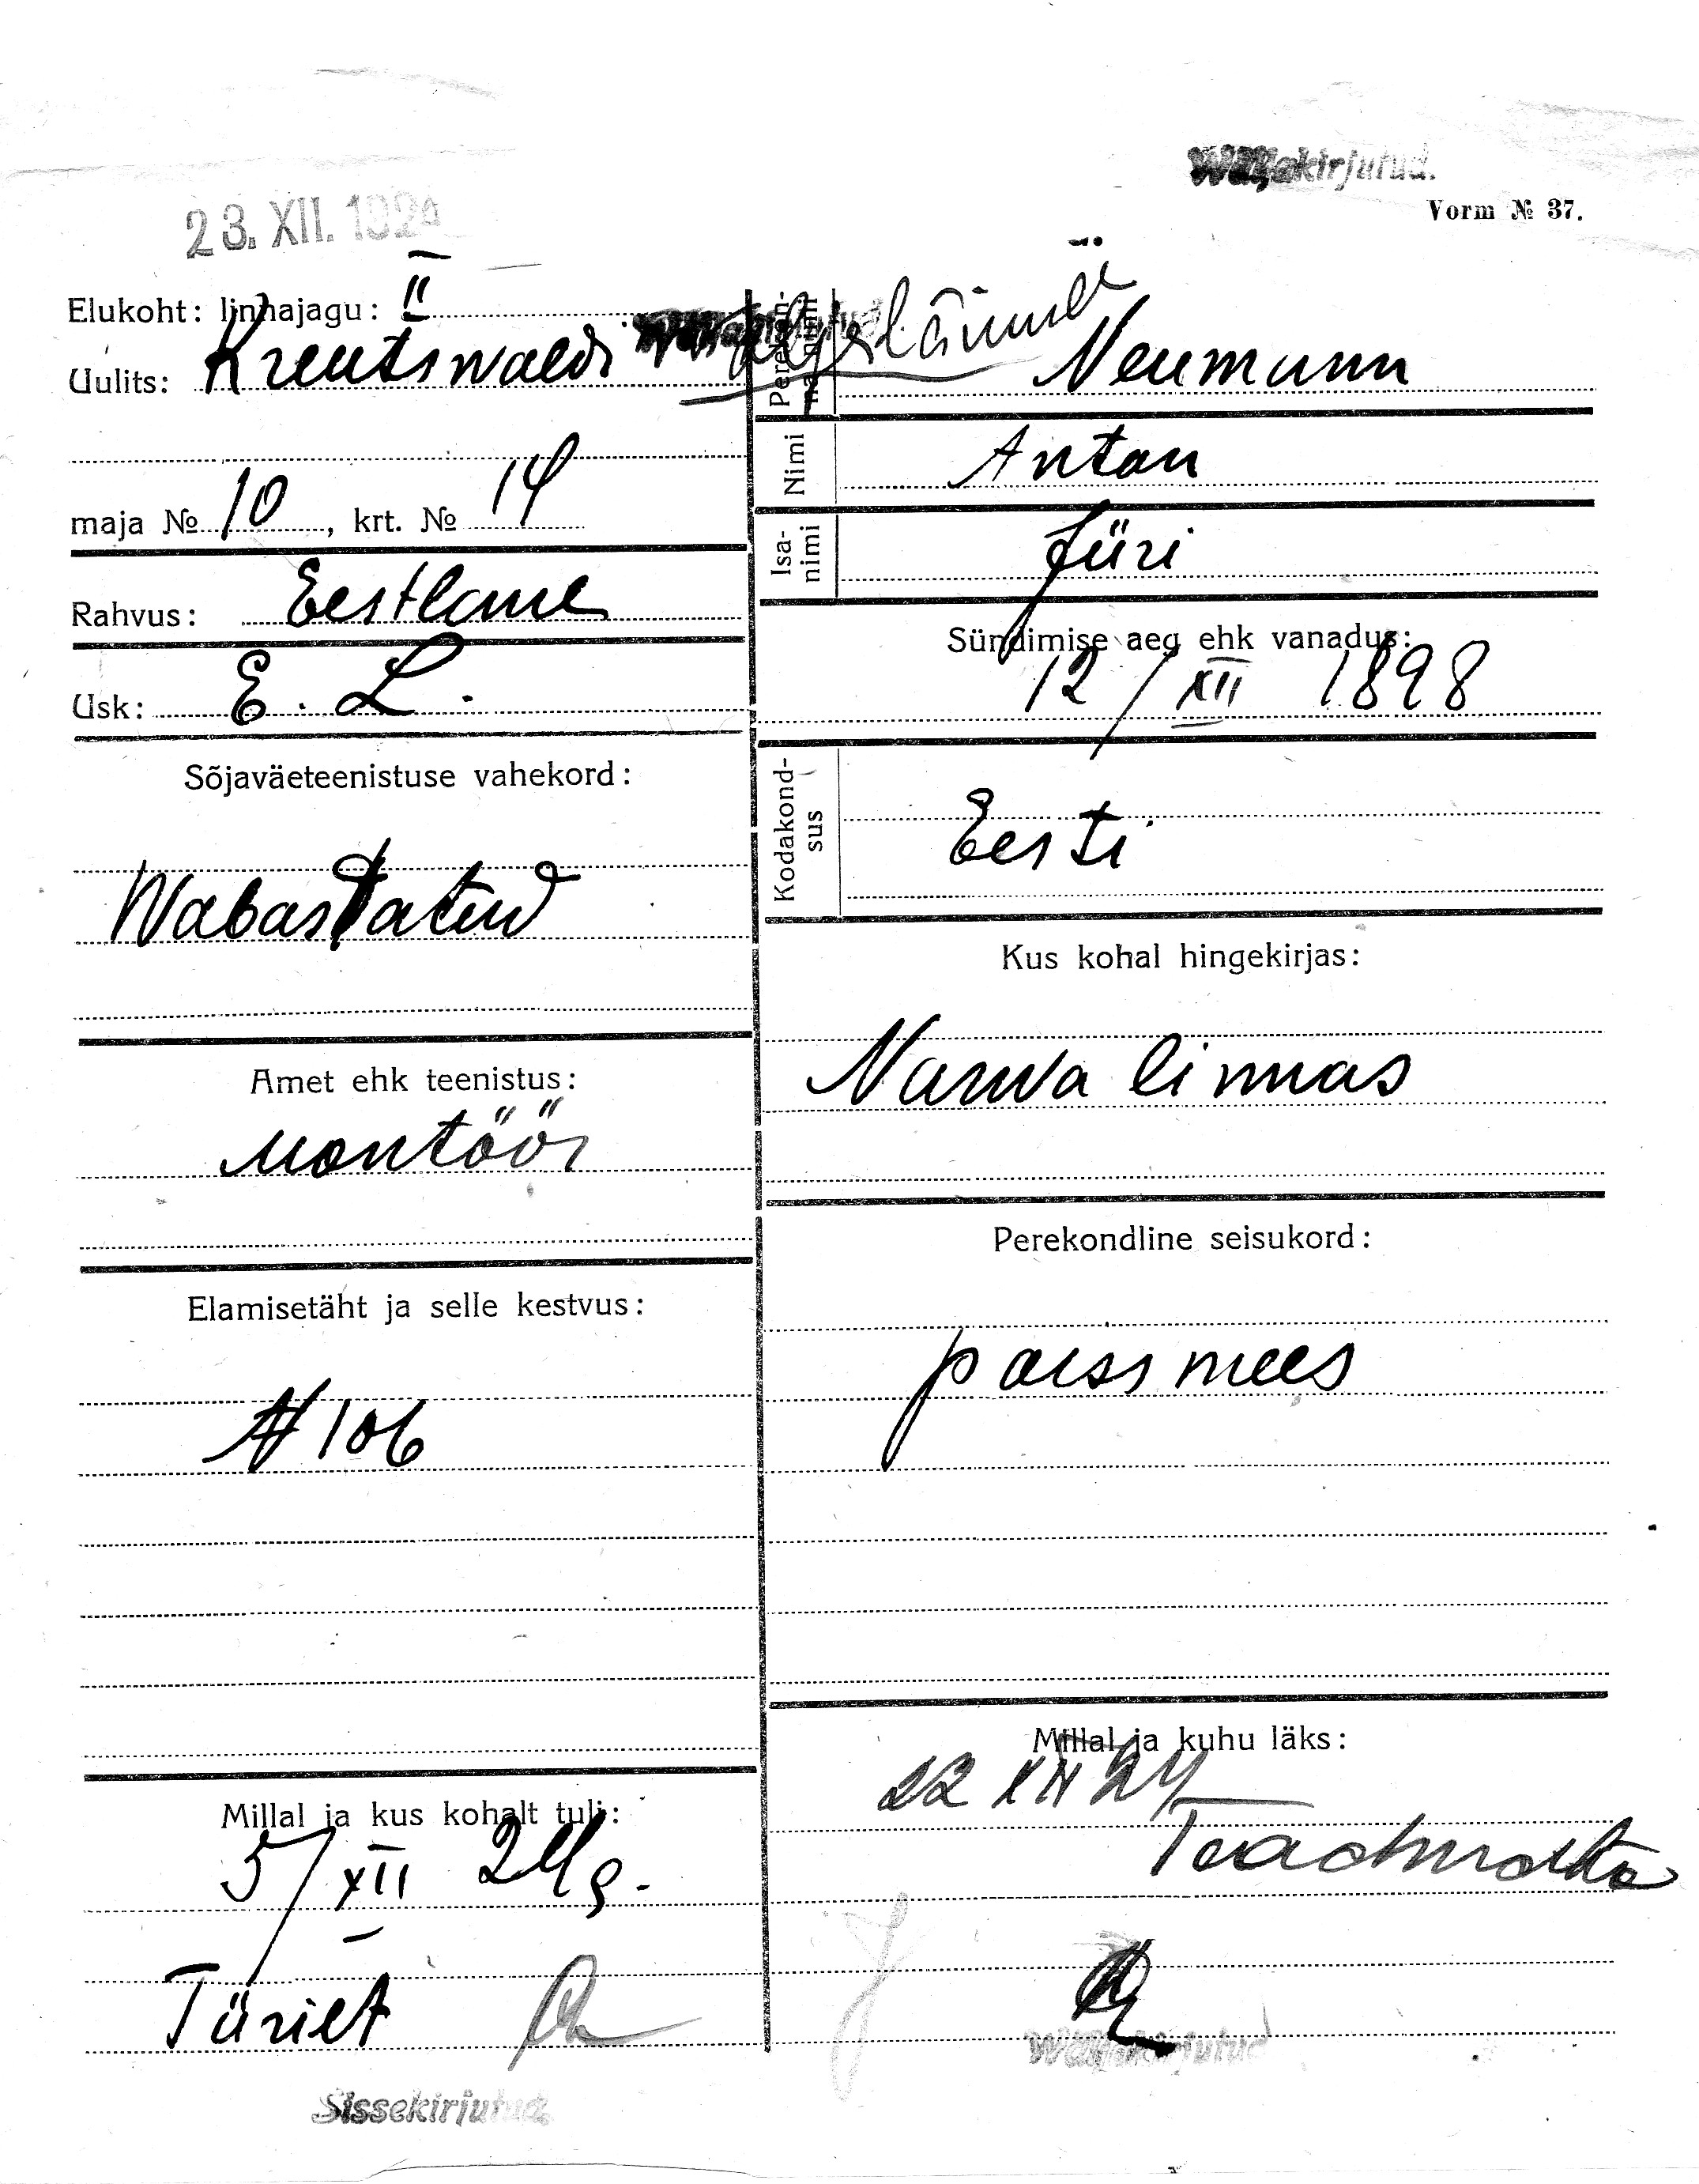 Wäljakirjutud.
Vorm № 37.
23. XII. 1924
Elukoht: linnajagu: II
Uulits: Kreutswaldi
maja № 10, krt. № 14
Rahvus: Eestlane
Usk: E. L.
Sõjaväeteenistuse vahekord:
Wabastatud
Amet ehk teenistus:
Montöör
Elamisetäht ja selle kestvus:
N 106
Millal ja kus kohalt tuli:
5/XII 24 g.
Türilt
Sissekirjutud.
Perekonnanimi
Neumann
Nimi
Anton
Isa-
nimi
Jüri
Sündimise aeg ehk vanadus:
12/XII 1898
Kodakond-
sus
Eesti
Kus kohal hingekirjas:
Narva linnas
Perekondline seisukord:
poissmees
Millal ja kuhu läks:
22 XII 24
Teadmata
Wäljakirjutud